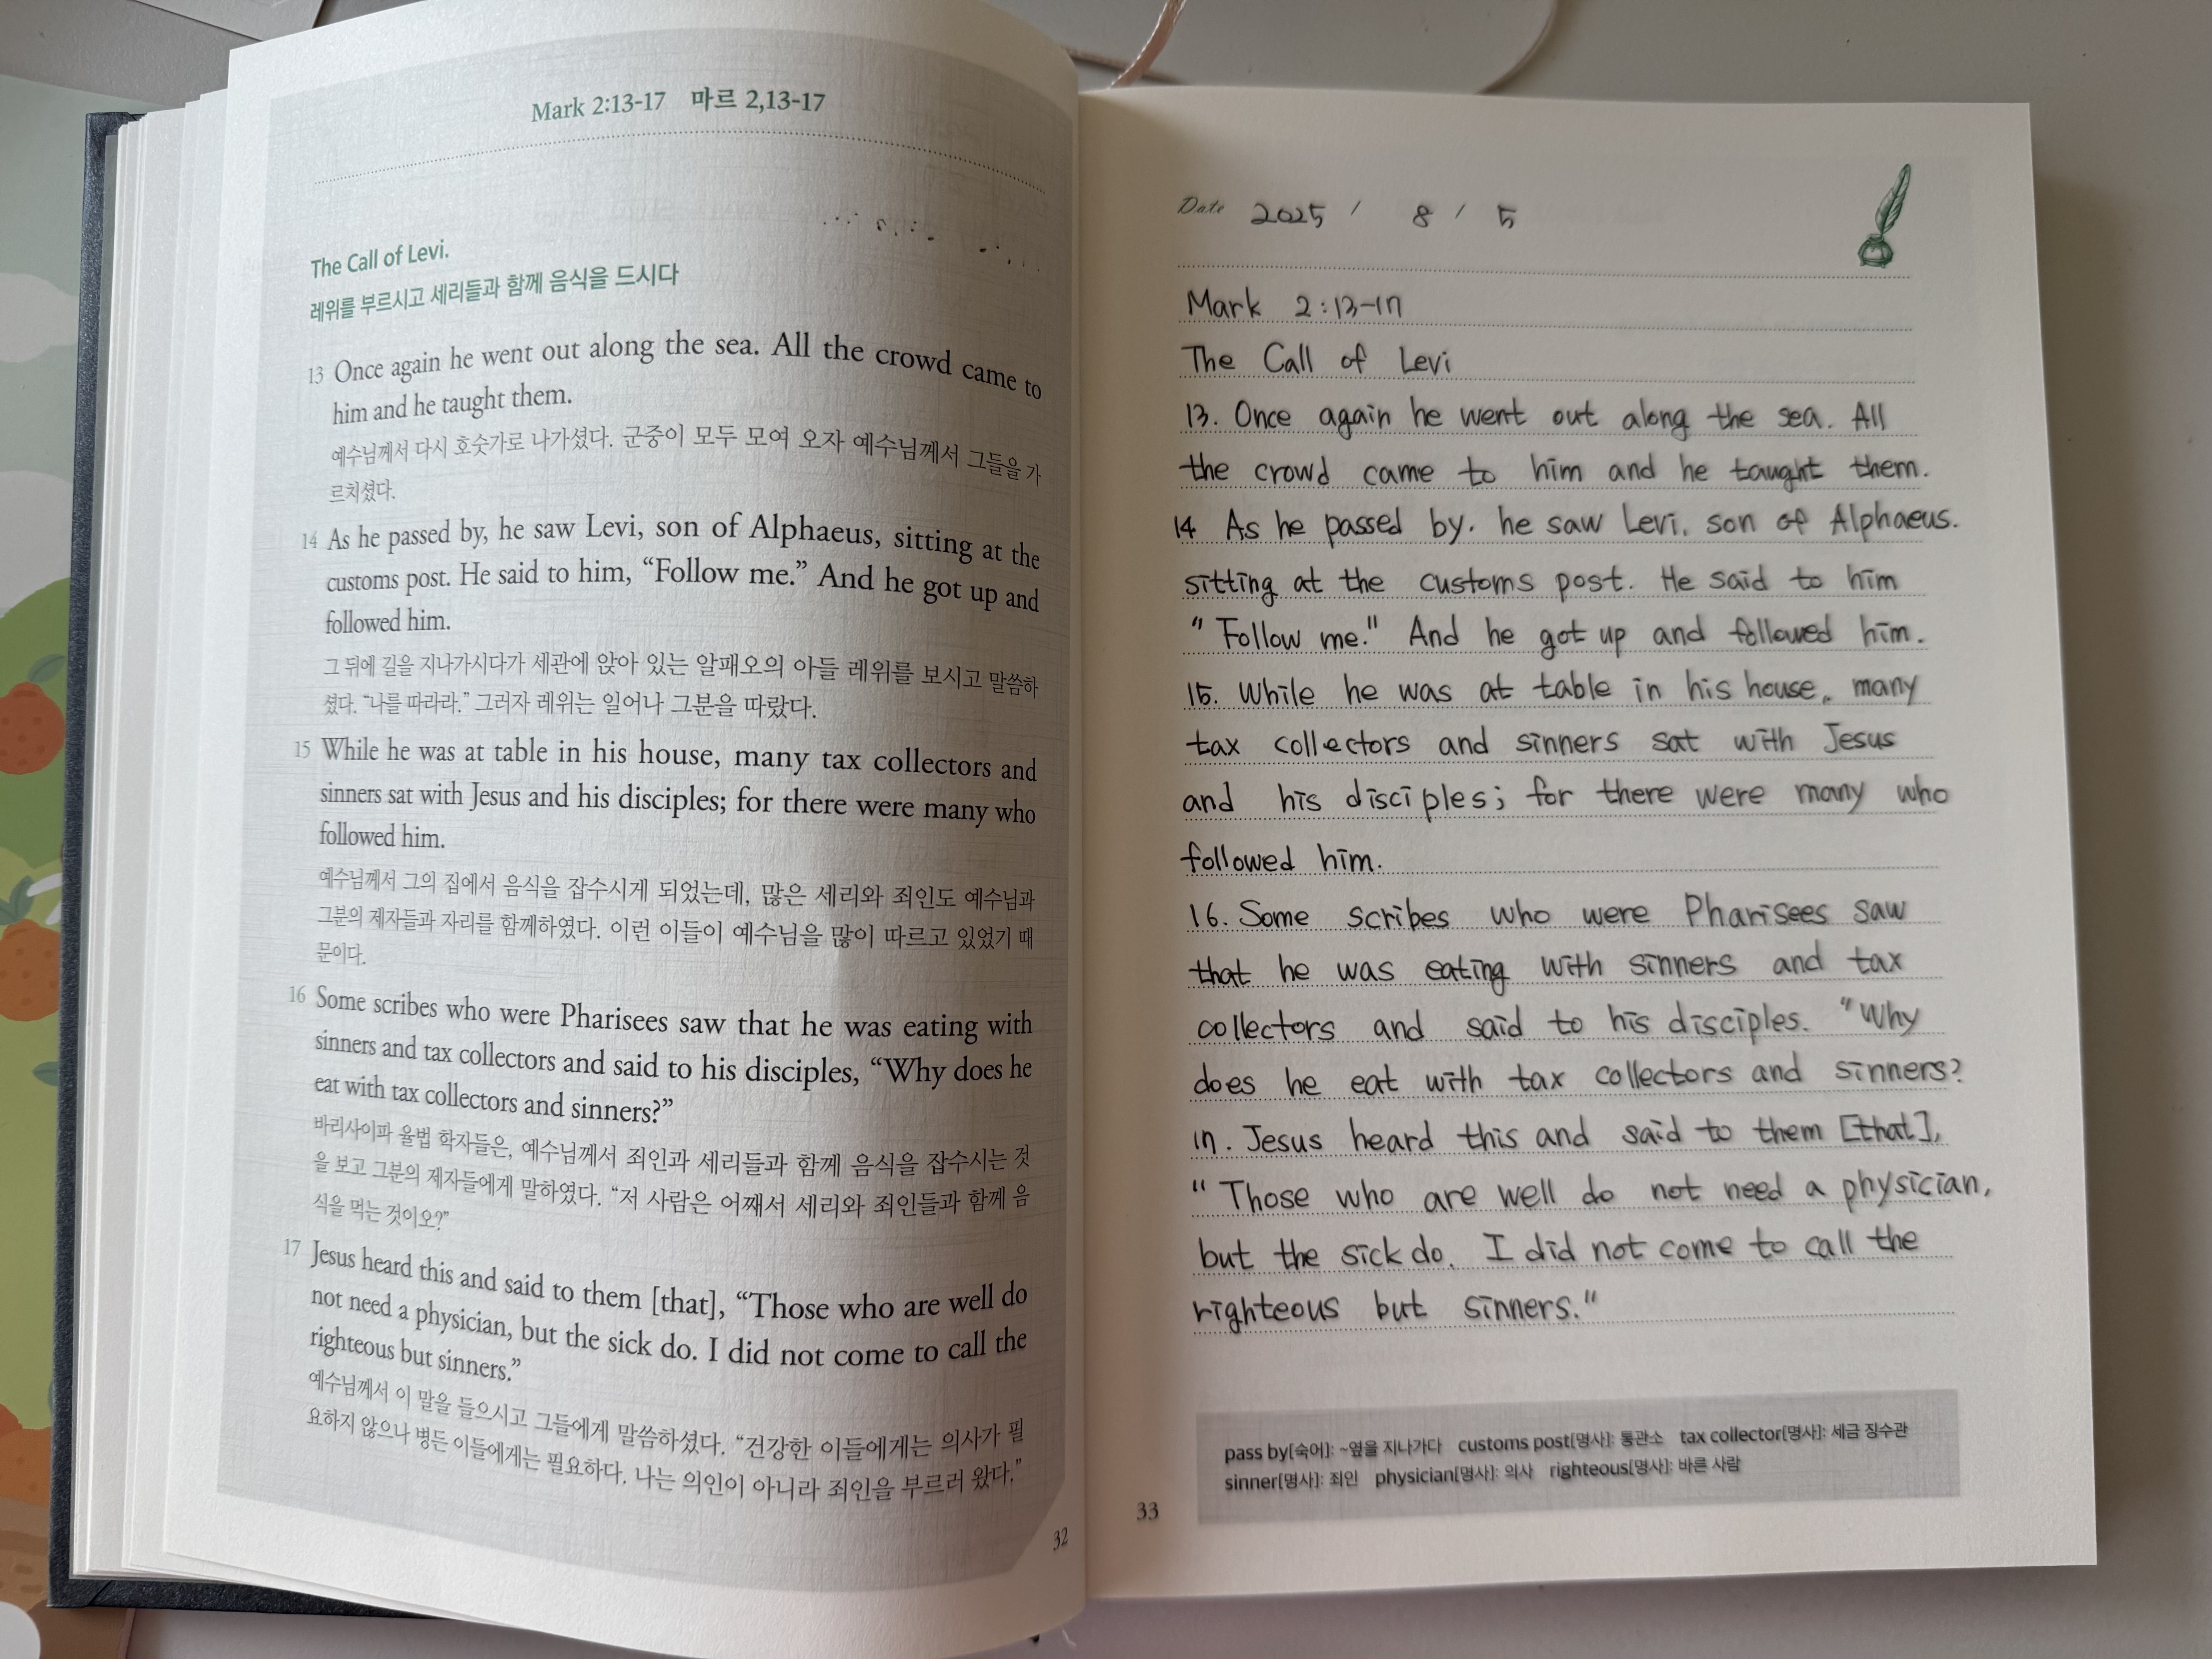 Mark 2:13-17 마르 2,13-17
The Call of Levi.
레위를 부르시고 세리들과 함께 음식을 드시다
13 Once again he went out along the sea. All the crowd came to
him and he taught them.
예수님께서 다시 호숫가로 나가셨다. 군중이 모두 모여 오자 예수님께서 그들을 가
르치셨다.
14 As he passed by, he saw Levi, son of Alphaeus, sitting at the
customs post. He said to him, “Follow me.” And he got up and
followed him.
그 뒤에 길을 지나가시다가 세관에 앉아 있는 알패오의 아들 레위를 보시고 말씀하
셨다. “나를 따라라.” 그러자 레위는 일어나 그분을 따랐다.
15 While he was at table in his house, many tax collectors and
sinners sat with Jesus and his disciples; for there were many who
followed him.
예수님께서 그의 집에서 음식을 잡수시게 되었는데, 많은 세리와 죄인도 예수님과
그분의 제자들과 자리를 함께하였다. 이런 이들이 예수님을 많이 따르고 있었기 때
문이다.
16 Some scribes who were Pharisees saw that he was eating with
sinners and tax collectors and said to his disciples, “Why does he
eat with tax collectors and sinners?”
바리사이파 율법 학자들은, 예수님께서 죄인과 세리들과 함께 음식을 잡수시는 것
을 보고 그분의 제자들에게 말하였다. “저 사람은 어째서 세리와 죄인들과 함께 음
식을 먹는 것이오?”
17 Jesus heard this and said to them [that], “Those who are well do
not need a physician, but the sick do. I did not come to call the
righteous but sinners.”
예수님께서 이 말을 들으시고 그들에게 말씀하셨다. “건강한 이들에게는 의사가 필
요하지 않으나 병든 이들에게는 필요하다. 나는 의인이 아니라 죄인을 부르러 왔다.”
32
Date 2025 / 8 / 5
Mark 2:13-17
The Call of Levi
13. Once again he went out along the sea. All
the crowd came to him and he taught them.
14 As he passed by. he saw Levi. son of Alphaeus.
sitting at the customs post. He said to him
"Follow me." And he got up and followed him.
15. While he was at table in his house, many
tax collectors and sinners sat with Jesus
and his disciples; for there were many who
followed him.
16. Some scribes who were Pharisees saw
that he was eating with sinners and tax
collectors and said to his disciples. "Why
does he eat with tax collectors and sinners?
17. Jesus heard this and said to them [that],
"Those who are well do not need a physician,
but the sick do. I did not come to call the
righteous but sinners."
pass by[숙어]: ~옆을 지나가다 customs post[명사]: 통관소 tax collector[명사]: 세금 징수관
sinner[명사]: 죄인 physician[명사]: 의사 righteous[명사]: 바른 사람
33